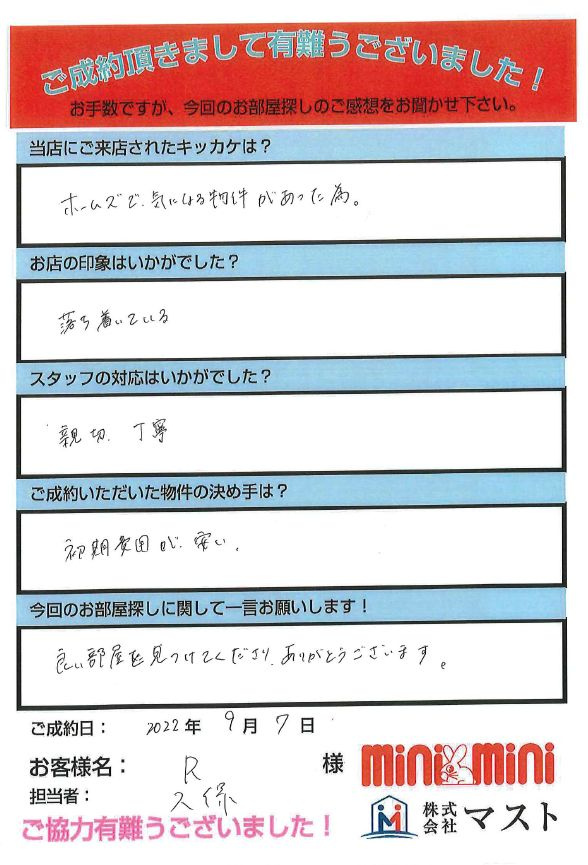 ご成約頂きまして有難うございました！
お手数ですが、今回のお部屋探しのご感想をお聞かせ下さい。
当店にご来店されたキッカケは？
ホームズで、気になる物件があった為。
お店の印象はいかがでした？
落ち着いている
スタッフの対応はいかがでした？
親切、丁寧
ご成約いただいた物件の決め手は？
初期費用が、安い。
今回のお部屋探しに関して一言お願いします！
良い部屋を見つけてくださり、ありがとうございます。
ご成約日： 2022年 9月 7日
お客様名： R 様
mini mini
担当者： 久保
株式会社 マスト
ご協力有難うございました！